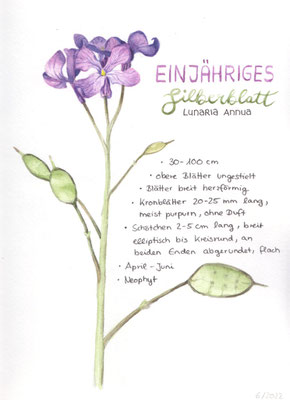 EINJÄHRIGES
Silberblatt
LUNARIA ANNUA
• 30-100 cm
• obere Blätter ungestielt
• Blätter breit herzförmig
• Kronblätter 20-25 mm lang,
meist purpurn, ohne Duft
• Schötchen 2-5 cm lang, breit
elliptisch bis kreisrund, an
beiden Enden abgerundet, flach
• April - Juni
• Neophyt